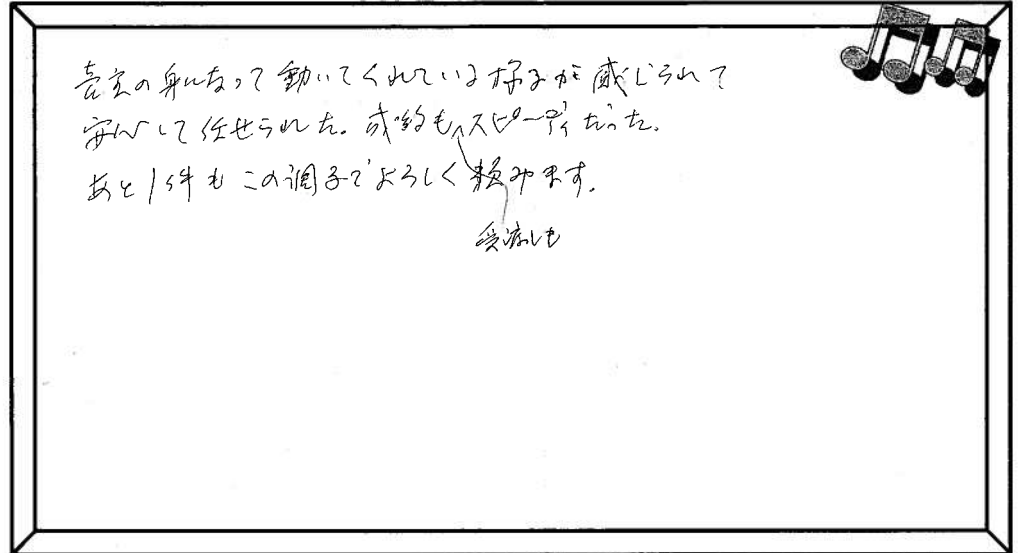 売主の身になって動いてくれている様子が感じられて
安心して任せられた。成約もスピーディだった。
あと1件もこの調子でよろしく頼みます。
受渡しも